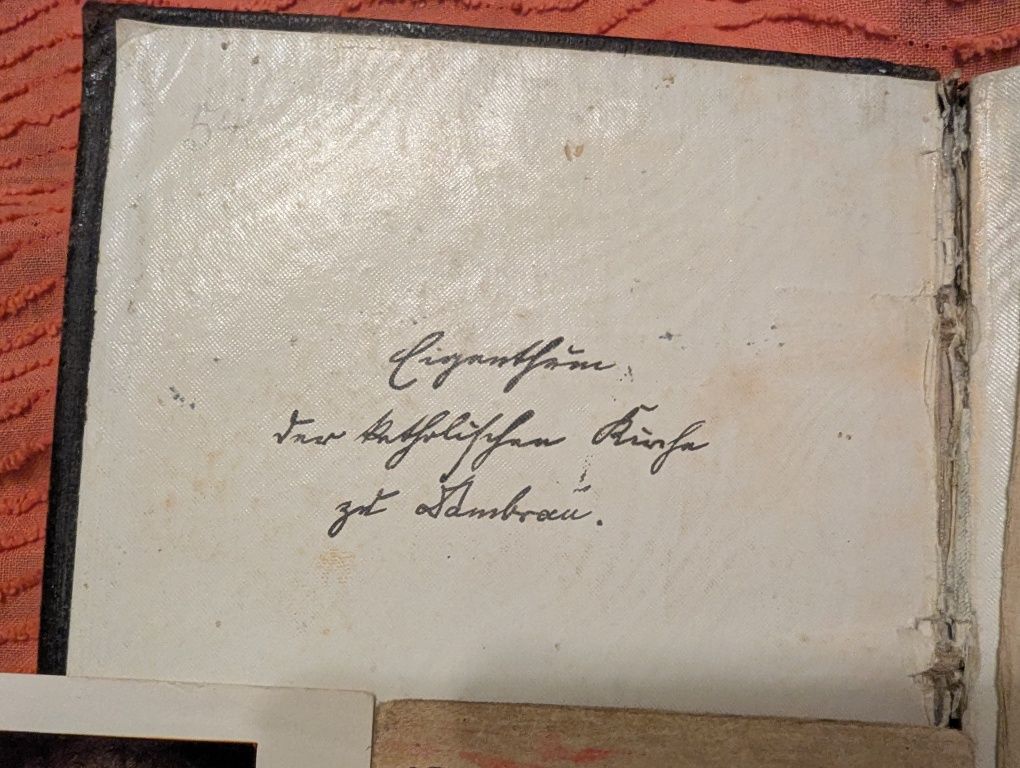 Eigenthum
der katholischen Kirche
zu Dambrau.